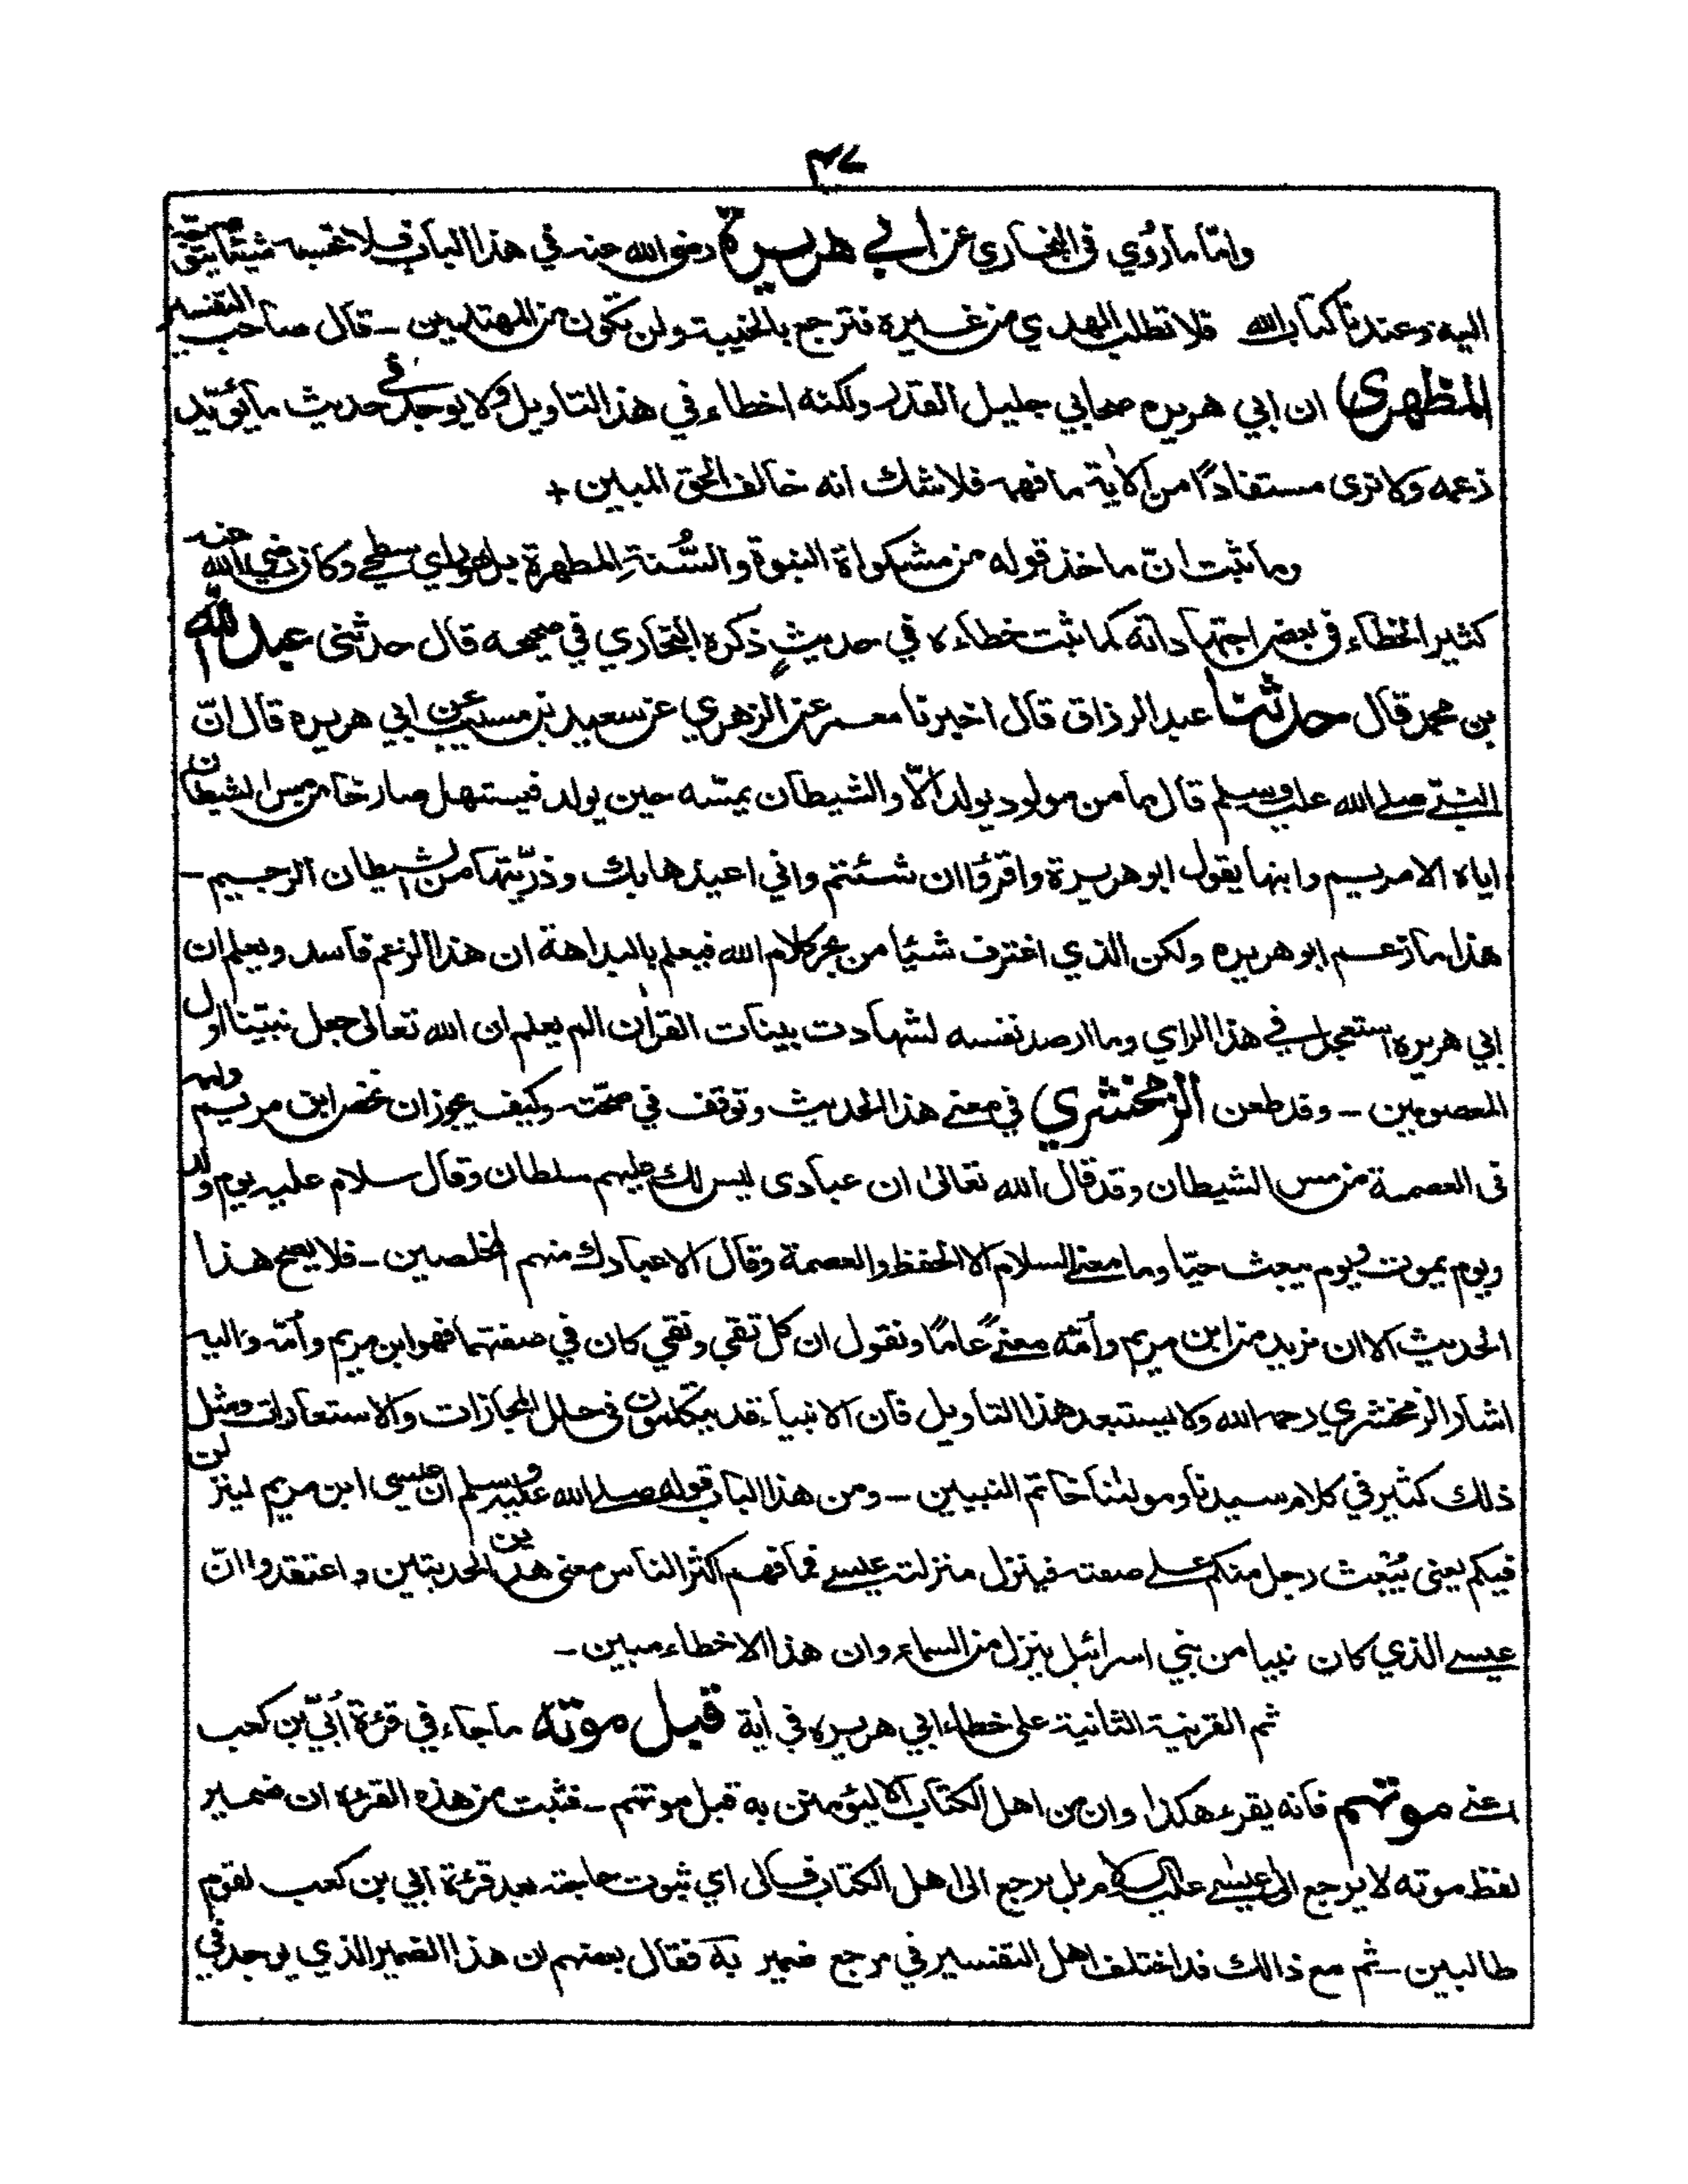 ٤٧
وامّا ما رُوي فی البخاری عن ابي هريرة رضی الله عنه في هذا الباب فلا تحسبه شيئًا يتوجّه
اليه وعندنا كتاب الله فلا تطلب الهدي من غيره فترجع بالخيبة ولن تكون من المهتدين – قال صاحب التفسير
المظهري ان ابي هريره صحابي جليل القدر ولكنه اخطاء في هذا التاويل ولا يوجد في حديث ما يؤيّد
زعمه ولا نرى مستفادًا من الاٰية ما فهم فلا شك انه خالف الحق المبين +
وما ثبت انّ ماخذ قوله من مشكواة النبوة والسُّنة المطهرة بل هو راي سطحي وكان رضي الله عنه
كثير الخطاء فی بعض اجتهاداته كما ثبت خطاءه في حديثٍ ذكره البخاري في صحيحه قال حدثنی عبد الله
بن محمد قال حدثنا عبد الرزاق قال اخبرنا معمر عن الزهري عن سعيد بن مسيب عن ابي هريره قال انّ
النبيّ صلى الله عليه وسلم قال ما من مولود يولد الّا والشيطان يمسّه حين يولد فيستهل صارخا من مس الشيطان
اياه الا مريم وابنها يقول ابو هريرة واقرؤا ان شئتم واني اعيذها بك وذرّيتها من الشيطان الرجيم –
هذا ما زعم ابو هريره ولكن الذي اغترف شيئا من بحر كلام الله فيعلم بالبداهة ان هذا الزعم فاسد ويعلم ان
ابي هريره استعجل في هذا الراي وما ارصد نفسه لشهادت بينات القراٰن الم يعلم ان الله تعالى جعل نبيّنا اول
المعصومين – وقد طعن الزمخشري في معنے هذا الحديث وتوقف في صحّته وكيف يجوز ان نخص ابن مريم وامه
فی العصمة من مس الشيطان وقد قال الله تعالیٰ ان عبادی ليس لك عليهم سلطان وقال سلام عليه يوم ولد
ويوم يموت ويوم يبعث حيّا وما معنے السلام الا الحفظ والعصمة وقال الا عبادك منهم المخلصين – فلا يصح هذا
الحديث الا ان نريد من ابن مريم وأمّه معنےً عامًا ونقول ان كل تقي ونقي كان في صفتهما فهو ابن مريم وأمّه واليه
اشار الزمخشري رحمه الله ولا يستبعد هذا التاويل فان الانبياء قد يتكلمون فی حلل المجازات والاستعارات ومثل
ذلك كثير في كلام سيدنا ومولٰنا خاتم النبيين – ومن هذا الباب قوله صلے الله عليه وسلم ان عيسى ابن مريم لينزلن
فيكم يعنی يُبْعث رجل منكم علے صفته فينزل منزلت عيسے فما فهم اكثر الناس معنی هذين الحديثين واعتقدوا انّ
عيسے الذي كان نبيا من بني اسرائيل ينزل من السماء وان هذا الا خطاء مبين –
ثم القرينة الثانية على خطاء ابي هريره فی اٰية قبل موته ما جاء في قرءة أُبيّ بن كعب
اعنے موتهم فانه يقرء هكذا وان من اهل الكتاب الا ليؤمنن به قبل موتهم – فثبت من هذه القرءه ان ضمير
لفظ موته لا يرجع الى عيسے عليه السلام بل يرجع الى اهل الكتاب فالى اي ثبوت حاجة بعد قرءة ابي بن كعب لقوم
طالبين – ثم مع ذالك قد اختلف اهل التفسير في مرجع ضمير به فقال بعضهم ان هذا الضمير الذي يوجد في